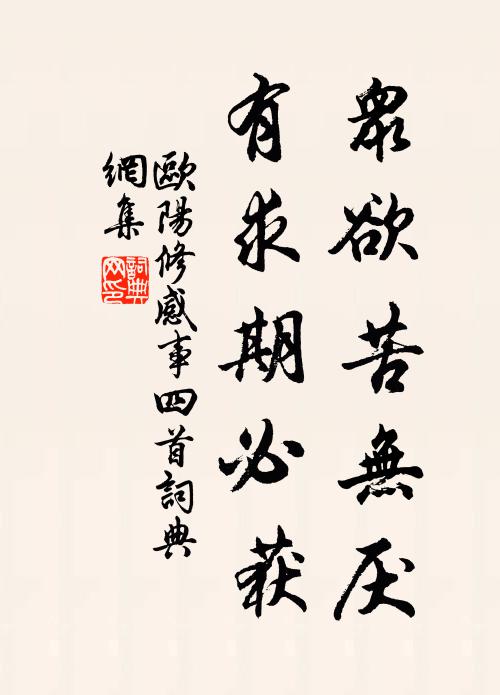 眾欲苦無厌
有求期必获
歐陽修感事四首詞典
網集
詞典網印